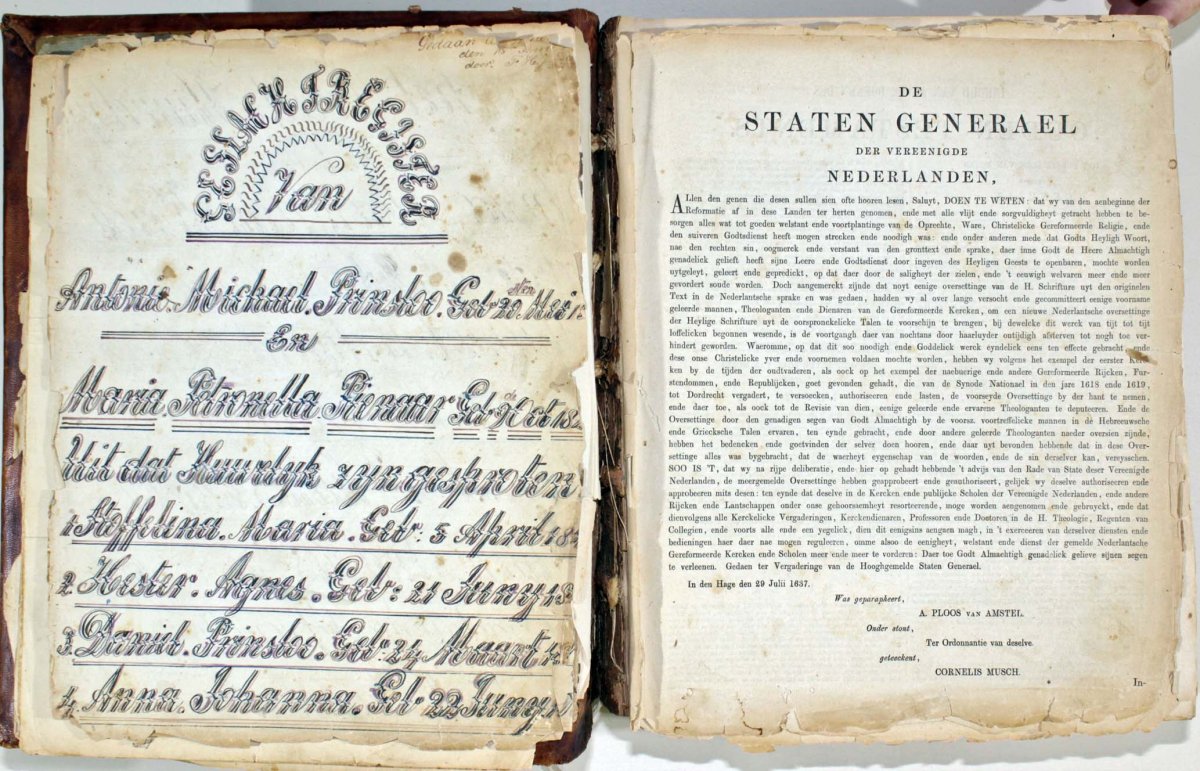 Gedaan
den
door
GESLACHTREGISTER
Van
Antonie Michael Prinsloo. Geb 20 Mei 1
En
Maria Petronella Pienaar Geb 9de Oct 18
Uit dat Huwelijk zyn gesproten
1 Steffelina. Maria. Geb: 5 April 18
2 Hester. Agnes. Geb: 21 Juny 18
3 Daniel. Prinsloo. Geb: 24 Maart
4 Anna. Johanna. Geb 22 Juny
DE
STATEN GENERAEL
DER VEREENIGDE
NEDERLANDEN,
ALlen den genen die desen sullen sien ofte hooren lesen, Saluyt, DOEN TE WETEN: dat wy van den aenbeginne der
Reformatie af in dese Landen ter herten genomen, ende met alle vlijt ende sorgvuldigheyt getracht hebben te be-
sorgen alles wat tot goeden welstant ende voortplantinge van de Oprechte, Ware, Christelicke Gereformeerde Religie, ende
den suiveren Godtsdienst heeft mogen strecken ende noodigh was: ende onder anderen mede dat Godts Heyligh Woort,
nae den rechten sin, oogmerck ende verstant van den gronttext ende sprake, daer inne Godt de Heere Almachtigh
genadelick gelieft heeft sijne Leere ende Godtsdienst door ingeven des Heyligen Geests te openbaren, mochte worden
uytgeleyt, geleert ende gepredickt, op dat daer door de saligheyt der zielen, ende 't eeuwigh welvaren meer ende meer
gevordert soude worden. Doch aengemerckt zijnde dat noyt eenige oversettinge van de H. Schrifture uyt den originelen
Text in de Nederlantsche sprake en was gedaen, hadden wy al over lange versocht ende gecommitteert eenige voorname
geleerde mannen, Theologanten ende Dienaren van de Gereformeerde Kercken, om een nieuwe Nederlantsche oversettinge
der Heylige Schrifture uyt de oorspronckelicke Talen te voorschijn te brengen, bij deweleke dit werck van tijt tot tijt
loffelicken begonnen wesende, is de voortgangh daer van nochtans door haarluyder ontijdigh afsterven tot nogh toe ver-
hindert geworden. Waeromme, op dat dit soo noodigh ende Goddelick werck eyndelick eens ten effecte gebracht, ende
dese onse Christelicke yver ende voornemen voldaen mochte worden, hebben wy volgens het exempel der eerster Ker-
ken by de tijden der oudtvaderen, als oock op het exempel der naebuerige ende andere Gereformeerde Rijcken, Fur-
stendommen, ende Republijcken, goet gevonden gehadt, die van de Synode Nationael in den jare 1618 ende 1619,
tot Dordrecht vergadert, te versoecken, authoriseeren ende lasten, de voorseyde Oversettinge by der hant te nemen,
ende daer toe, als oock tot de Revisie van dien, eenige geleerde ende ervarene Theologanten te deputeeren. Ende de
Oversettinge door den genadigen segen van Godt Almachtigh by de voorsz. voortreffelicke mannen in de Hebreeuwsche
ende Griecksche Talen ervaren, ten eynde gebracht, ende door andere geleerde Theologanten naeder oversien zijnde,
hebben het bedencken ende goetvinden der selver doen hooren, ende daar uyt bevonden hebbende dat in dese Over-
settinge alles was bygebracht, dat de waerheyt eygenschap van de woorden, ende de sin derselver kan, vereysschen.
SOO IS 'T, dat wy na rijpe deliberatie, ende hier op gehadt hebbende 't advijs van den Rade van State deser Vereenigde
Nederlanden, de meergemelde Oversettinge hebben geapprobeert ende geauthoriseert, gelijck wy deselve authoriseeren ende
approbeeren mits desen: ten eynde dat deselve in de Kercken ende publijcke Scholen der Vereenigde Nederlanden, ende andere
Rijcken ende Lantschappen onder onse gehoorsaemheyt resorteerende, moge worden aengenomen ende gebruyckt, ende dat
dienvolgens alle Kerckelicke Vergaderingen, Kerckendienaren, Professoren ende Doctoren in de H. Theologie, Regenten van
Collegien, ende voorts alle ende een yegeliek, dien dit eenigsins aengaen magh, in 't exerceeren van derselver diensten ende
bedieningen haer daer nae mogen reguleeren, omme alsoo de eenigheyt, welstant ende dienst der gemelde Nederlantsche
Gereformeerde Kercken ende Scholen meer ende meer te vorderen: Daer toe Godt Almachtigh genadelick gelieve sijnen segen
te verleenen. Gedaen ter Vergaderinge van de Hooghgemelde Staten Generael.
In den Hage den 29 Julii 1637.
Was geparapheert,
A. PLOOS VAN AMSTEL.
Onder stont,
Ter Ordonnantie van deselve.
geteeckent,
CORNELIS MUSCH.
In-